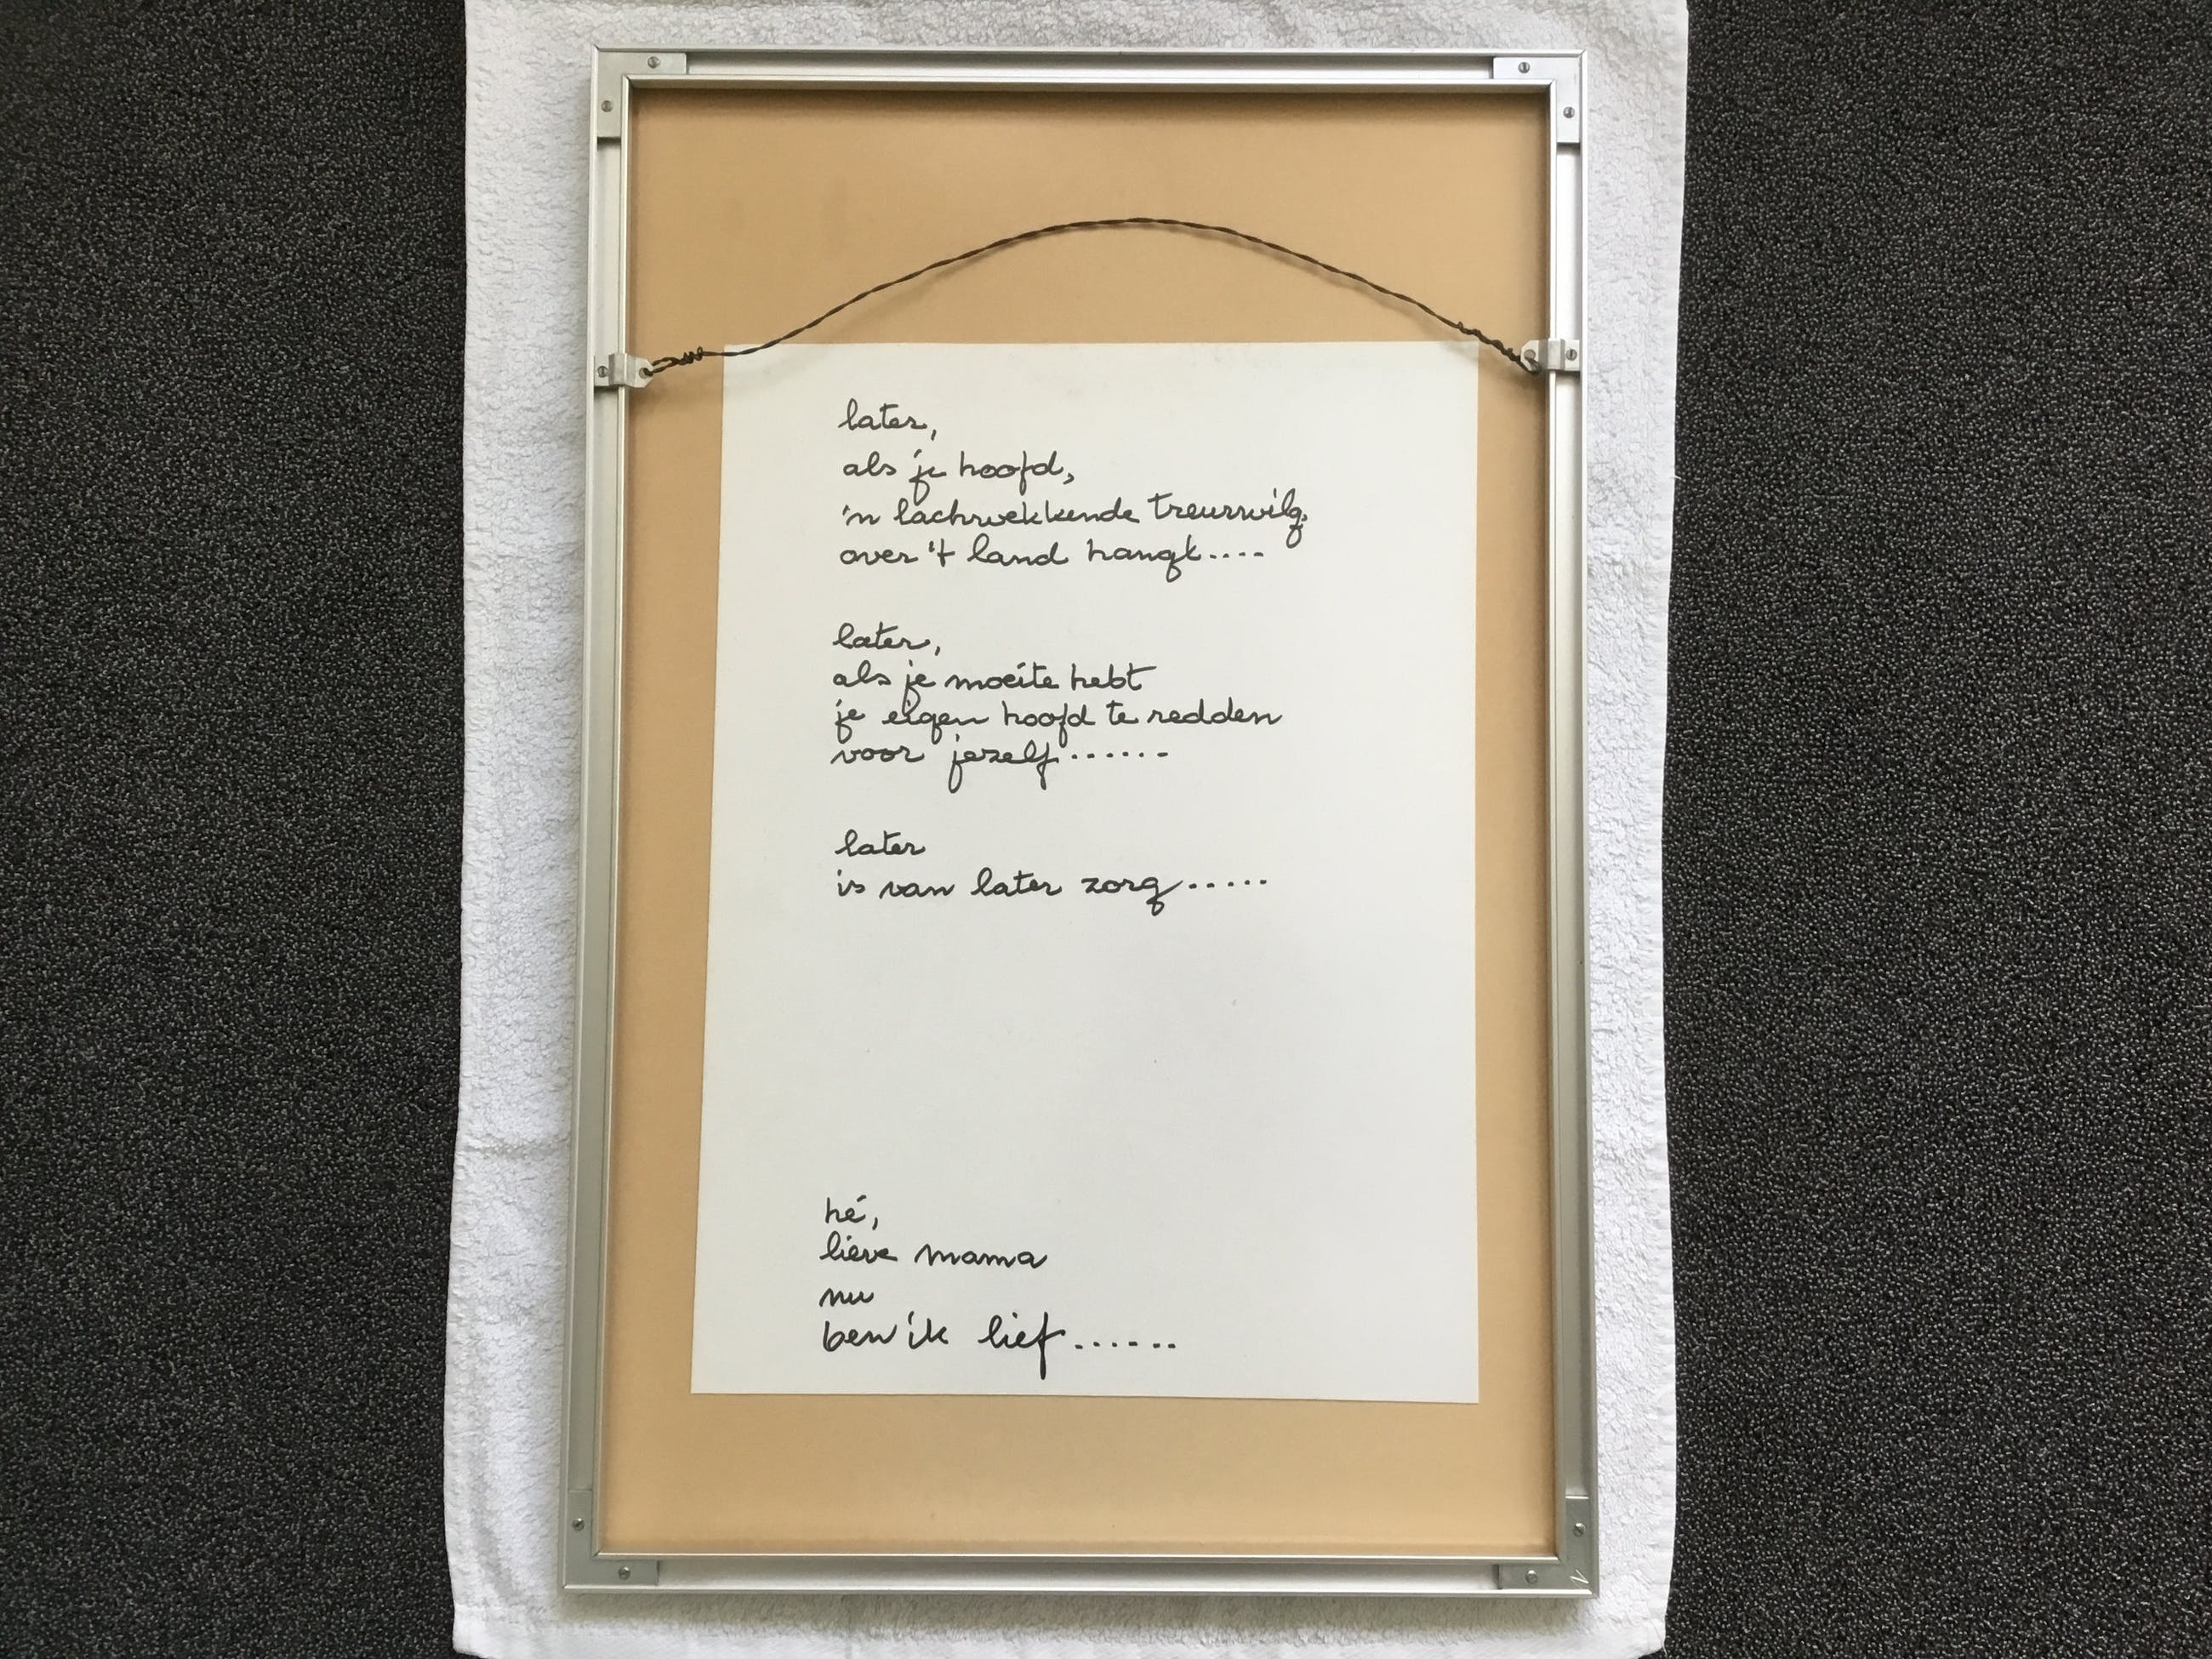 later,
als je hoofd,
'n lachwekkende treurwilg,
over 't land hangt....
later,
als je moeite hebt
je eigen hoofd te redden
voor jezelf......
later
is van later zorg.....
hé,
lieve mama
nu
ben ik lief......